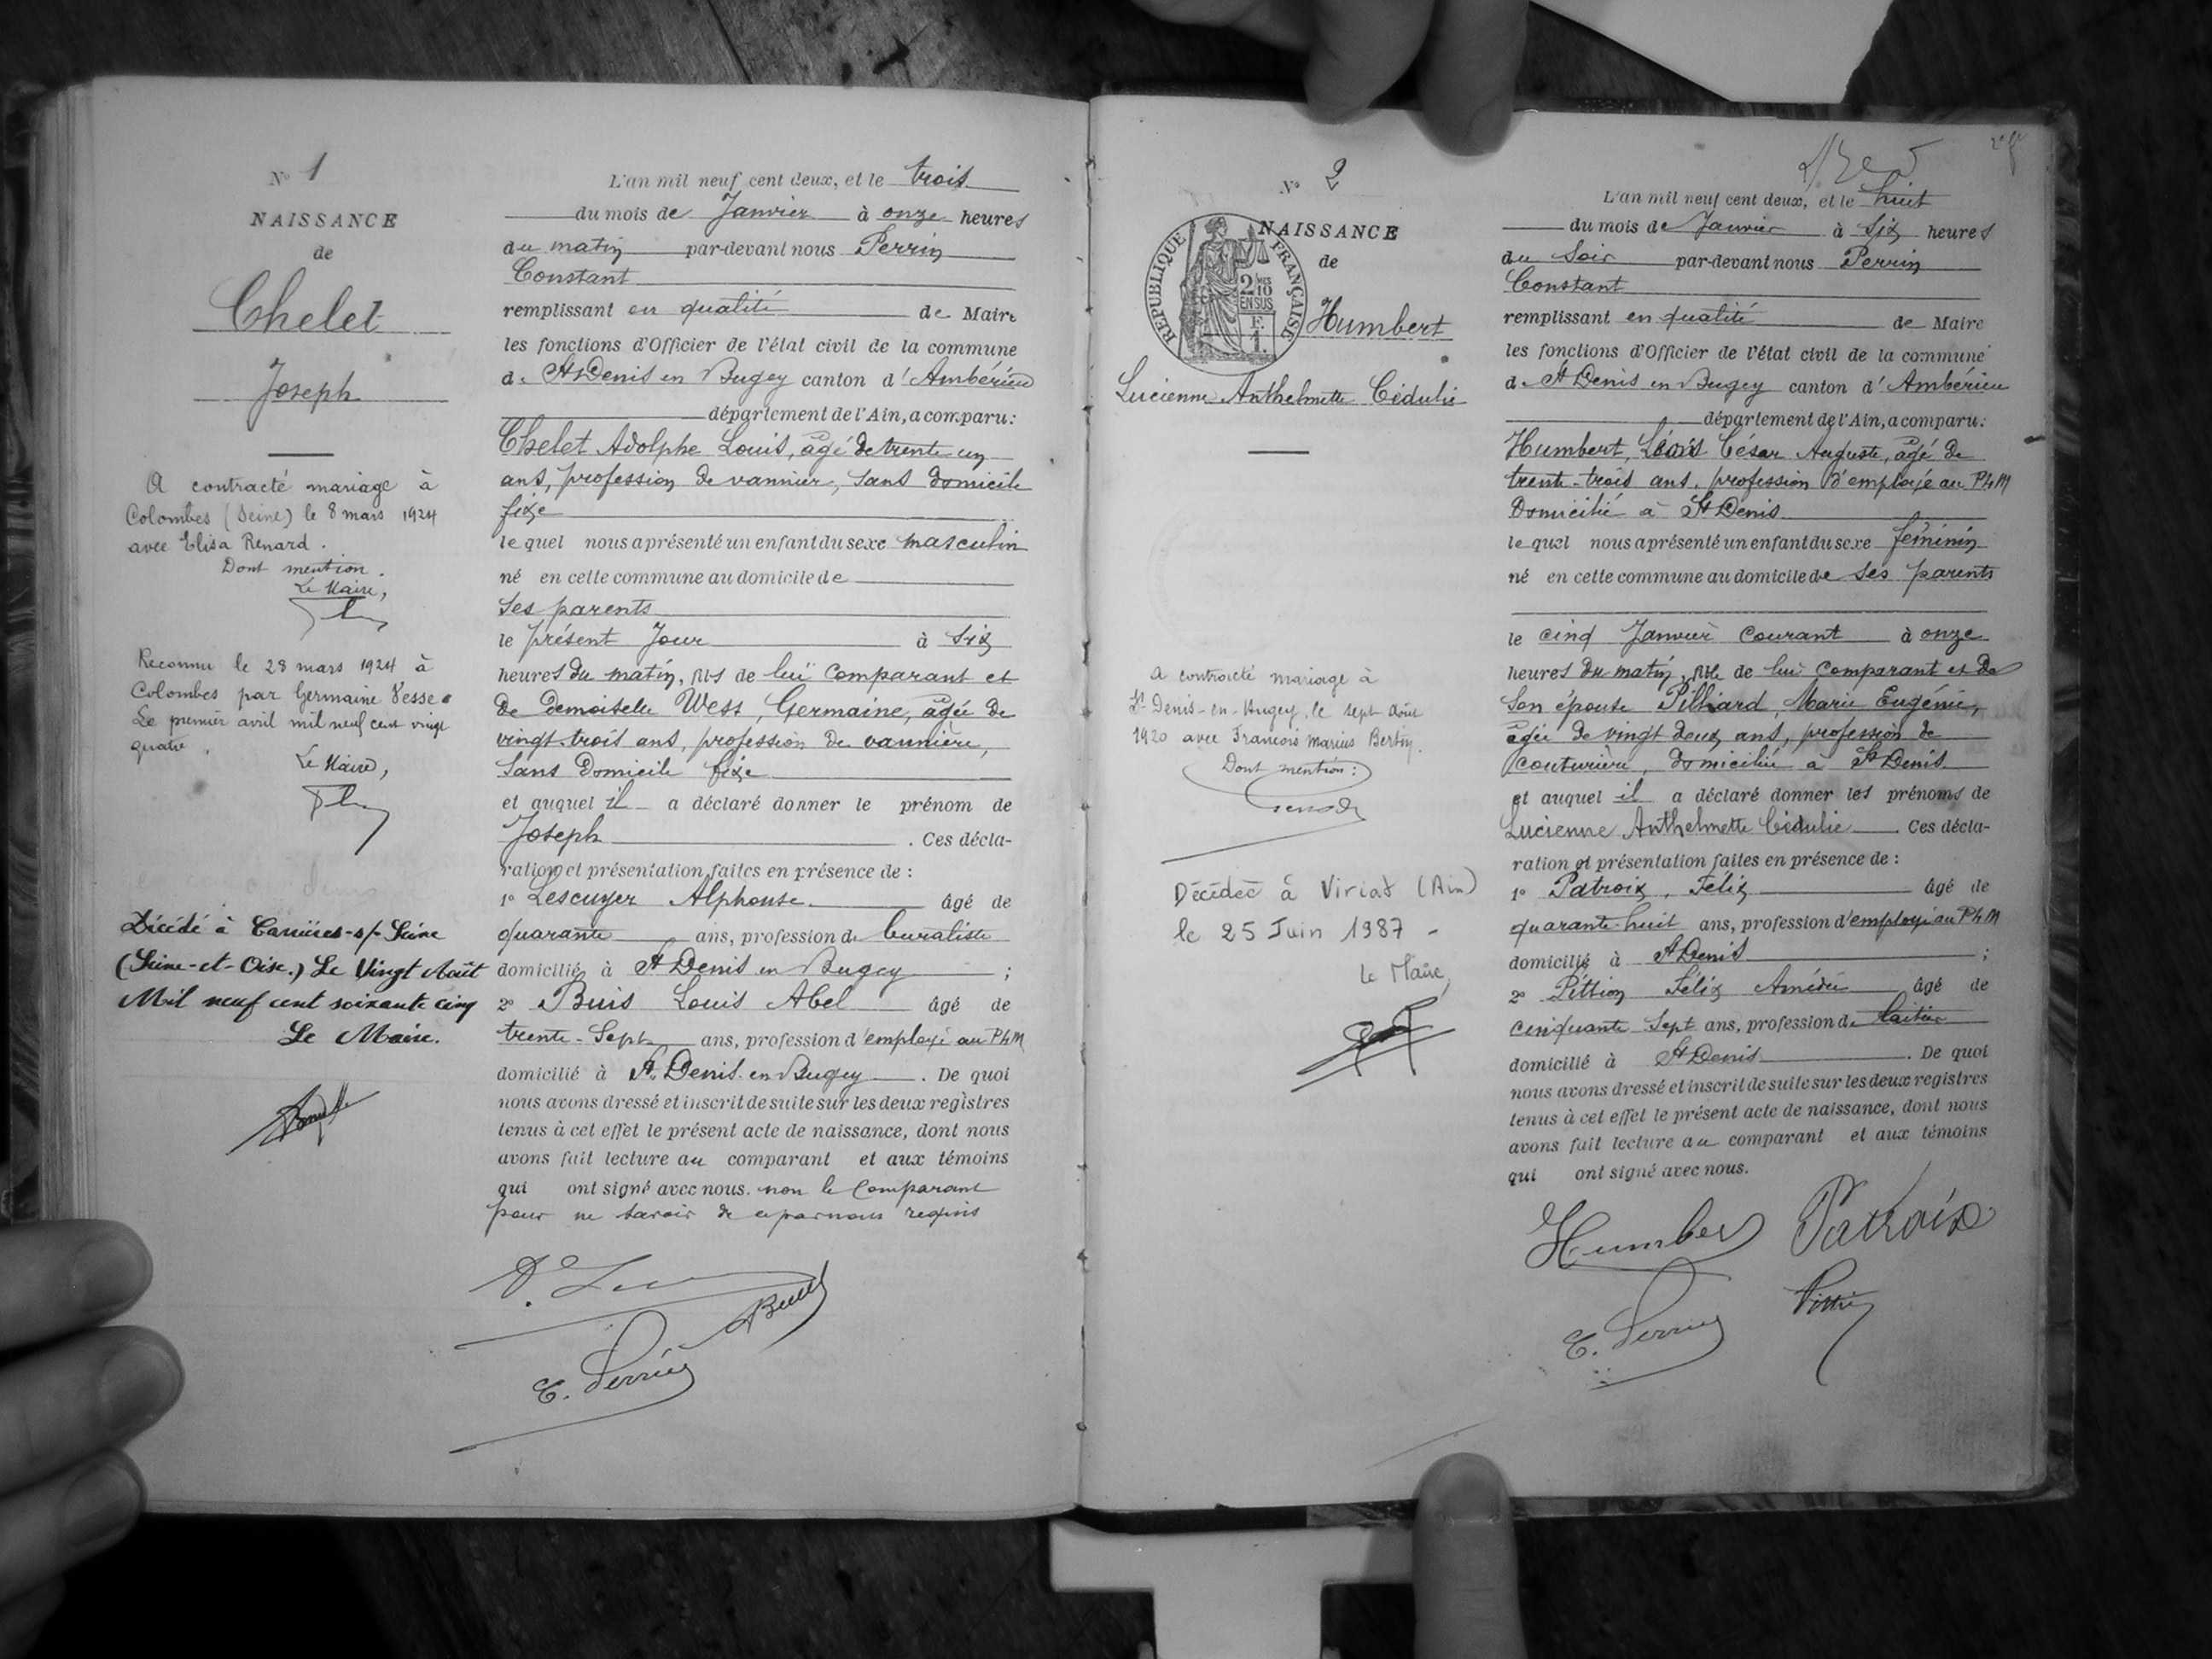 N° 1
NAISSANCE
de
Chelet
Joseph
A contracté mariage à
Colombes (Seine) le 8 mars 1924
avec Elisa Renard.
Dont mention.
Le Maire,
Reconnu le 28 mars 1924 à
Colombes par Germaine Vesse
Le premier avril mil neuf cent vingt
quatre.
Le Maire,
Décédé à Carrières-s/-Seine
(Seine-et-Oise.) Le Vingt Août
Mil neuf cent soixante cinq
Le Maire.
L'an mil neuf cent deux, et le trois
du mois de Janvier à onze heures
du matin par-devant nous Perrin
Constant
remplissant en qualité de Maire
les fonctions d'Officier de l'état civil de la commune
de St Denis en Bugey canton d'Ambérieu
département de l'Ain, a comparu:
Chelet Adolphe Louis, âgé de trente un
ans, profession de vannier, sans domicile
fixe
lequel nous a présenté un enfant du sexe masculin
né en cette commune au domicile de
ses parents
le présent jour à six
heures du matin, fils de lui comparant et
de Demoiselle Wess, Germaine, agée de
vingt-trois ans, profession de vannière,
sans domicile fixe
et auquel il a déclaré donner le prénom de
Joseph. Ces décla-
ration et présentation faites en présence de :
1° Lescuyer Alphonse âgé de
quarante ans, profession de buraliste
domicilié à St Denis en Bugey ;
2° Buis Louis Abel âgé de
trente-sept ans, profession d'employé au PLM
domicilié à St Denis en Bugey. De quoi
nous avons dressé et inscrit de suite sur les deux registres
tenus à cet effet le présent acte de naissance, dont nous
avons fait lecture au comparant et aux témoins
qui ont signé avec nous. non le comparant
pour ne savoir de ce par nous requis
Buis
C. Perrin
N° 2
REPUBLIQUE FRANÇAISE
2/10 EN SUS
NAISSANCE
de
Humbert
Lucienne Anthelmette Cédulie
A contracté mariage à
St Denis-en-Bugey, le sept août
1920 avec François Marius Bertin.
Dont mention :
Décédée à Viriat (Ain)
le 25 Juin 1987 -
Le Maire,
L'an mil neuf cent deux, et le huit
du mois de Janvier à six heures
du soir par-devant nous Perrin
Constant
remplissant en qualité de Maire
les fonctions d'Officier de l'état civil de la commune
de St Denis en Bugey canton d'Ambérieu
département de l'Ain, a comparu:
Humbert, César Auguste, âgé de
trente-trois ans, profession d'employé au PLM
domicilié à St Denis
lequel nous a présenté un enfant du sexe féminin
né en cette commune au domicile de ses parents
le cinq Janvier courant à onze
heures du matin, fille de lui comparant et de
son épouse Pilliard, Marie Eugénie,
agée de vingt deux ans, profession de
couturière, domiciliée à St Denis
et auquel il a déclaré donner les prénoms de
Lucienne Anthelmette Cédulie. Ces décla-
ration et présentation faites en présence de :
1° Patroix, Félix âgé de
quarante-huit ans, profession d'employé au PLM
domicilié à St Denis ;
2° Pittion Félix Amédée âgé de
cinquante sept ans, profession de laitier
domicilié à St Denis. De quoi
nous avons dressé et inscrit de suite sur les deux registres
tenus à cet effet le présent acte de naissance, dont nous
avons fait lecture au comparant et aux témoins
qui ont signé avec nous.
Humbert Patroix
C. Perrin Pittion